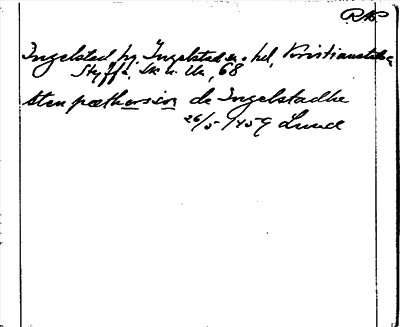 RAP
Ingelsted by, Ingelstads hd, Kristianstads
Styffe, Sk. u. Un, 68
Sten pæthersson de Ingelstadhe
26/5 1459 Lund